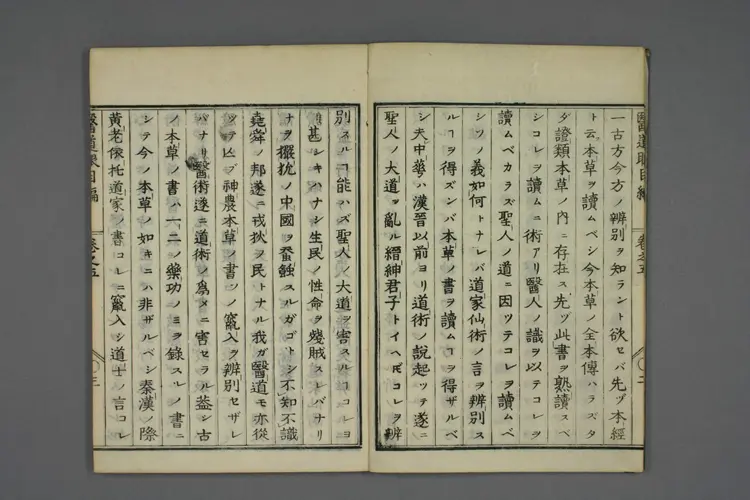 一古方今方ノ辨別ヲ知ラント欲セバ先ヅ本經
ト云本草ヲ讀ムベシ今本草ノ全本傳ハラズタ
ダ證類本草ノ内ニ存在ス先ヅ此書ヲ熟讀スベ
シコレヲ讀ムニ術アリ醫人ノ識ヲ以テコレヲ
讀ムベカラズ聖人ノ道ニ因ツテコレヲ讀ムベ
シソノ義如何トナレバ道家仙術ノ言ヲ辨別ス
ルヿヲ得ズンバ本草ノ書ヲ讀ムヿヲ得ザルベ
シ夫中華ハ漢晉以前ヨリ道術ノ説起ツテ遂ニ
聖人ノ大道ヲ亂ル縉紳君子トイヘ𪜈コレヲ辨
別スルヿ能ハズ聖人ノ大道ヲ害スルヿコレヨ
甚シキハナシ生民ノ性命ヲ殘賊スレバナリ
ナヲ攙抢ノ中國ヲ蚕蝕スルガゴトシ不知不識
堯舜ノ邦遂ニ戎狄ヲ民トナル我ガ醫道モ亦從
ツテ𪜈ブ神農本草ノ書ソノ竄入ヲ辨別セザレ
バナリ醫術遂ニ道術ノ爲メニ害セラル蓋シ古
ノ本草ノ書ハ一二ノ藥功ノミヲ錄スルノ書ニ
シテ今ノ本草ノ如キニハ非ザルベシ秦漢ノ際
黄老依托道家ノ書コレニ竄入シ道士ノ言コレ
卷之五